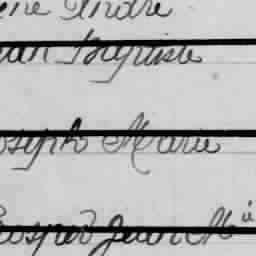 ené André
ean Baptiste
oseph Marie
rosper Jean Mie